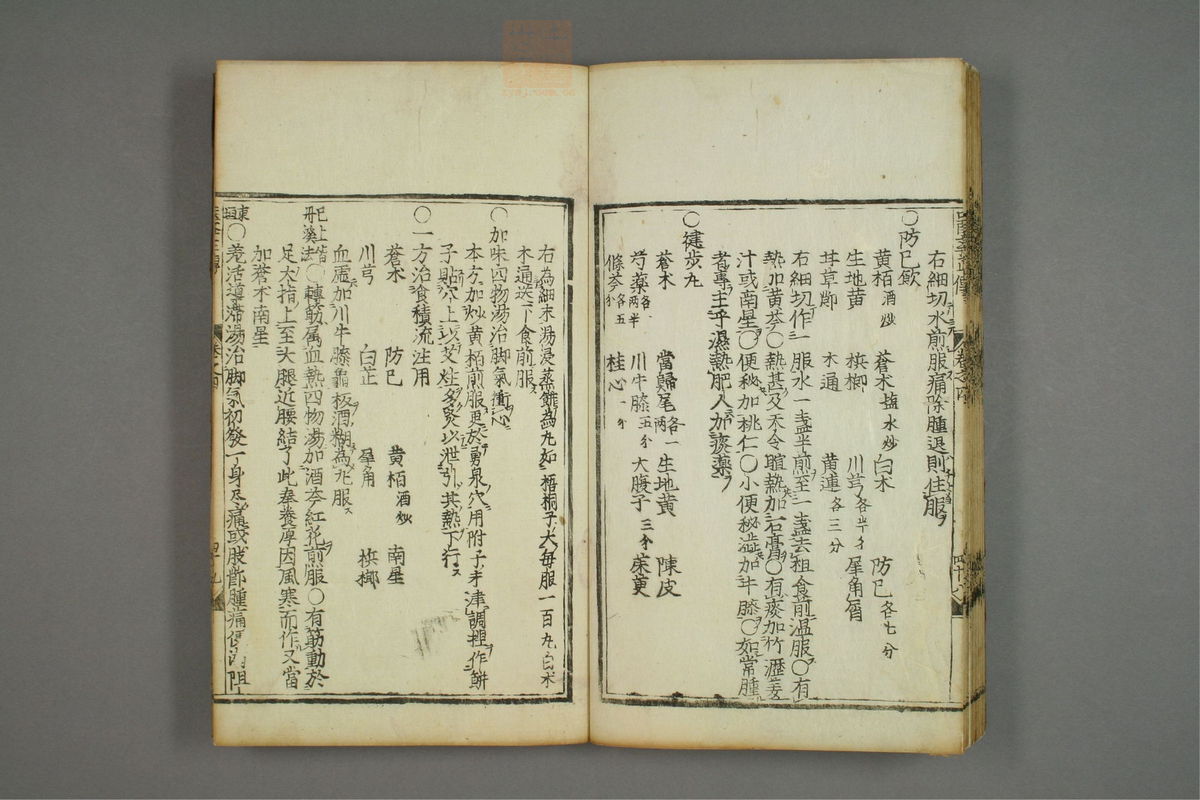 右細切水煎服痛除腫退則住服
○防已飲
黄栢酒炒 蒼朮塩水炒 白朮 防已各七分
生地黄 梹榔 川芎各半分 犀角屑
甘草梢 木通 黄連各三分
右細切作一服水一盞半煎至一盞去粗食前温服○有
熱加黄芩○熱甚及天令暄熱加石膏○有痰加竹瀝姜
汁或南星○便秘加桃仁○小便秘澁加牛膝○如常腫
者專主乎濕熱肥人加痰藥
○健歩丸
蒼朮 當歸尾各一両 生地黄 陳皮
芍薬各両半 川牛膝五分 大腹子三分 茱萸
條芩各五分 桂心一分
右為細末湯浸蒸餅為丸如梧桐子大毎服一百丸白朮
木通送下食前服
○加味四物湯治脚氣衝心
本方加炒黄栢煎服更於湧泉穴用附子末津調捏作餅
子貼穴上以艾炷多炙以泄引其熱下行
○一方治食積流注用
蒼朮 防已 黄栢酒炒 南星
川芎 白芷 犀角 梹榔
血虛加川牛膝龜板酒糊為丸服
已上皆丹溪法○轉筋属血熱四物湯加酒芩紅花煎服○有筋動於
足大指上至大腿近腰結了此奉養厚因風寒而作又當
加蒼朮南星
東垣○羗活導滯湯治脚氣初發一身尽痛或肢節腫痛便阻